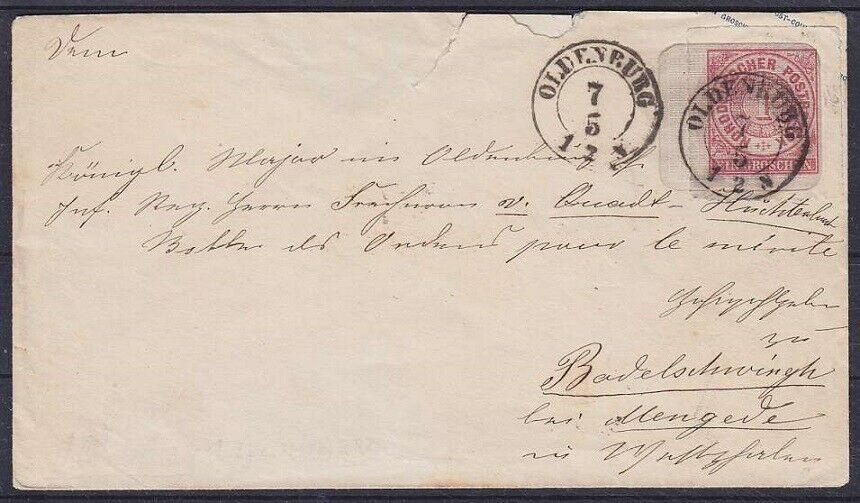 Dem
Königl. Major im Oldenburg.
Inf. Reg. Herrn Freiherrn v. Quadt - Hüchtenbruck
des Ordens pour le mérite
zu
Bodelschwingh
bei Mengede
in Westphalen
OLDENBURG
7
5
12 N
NORDDEUTSCHER POSTBEZIRK
GROSCHEN
OLDENBURG
7
5
12 N